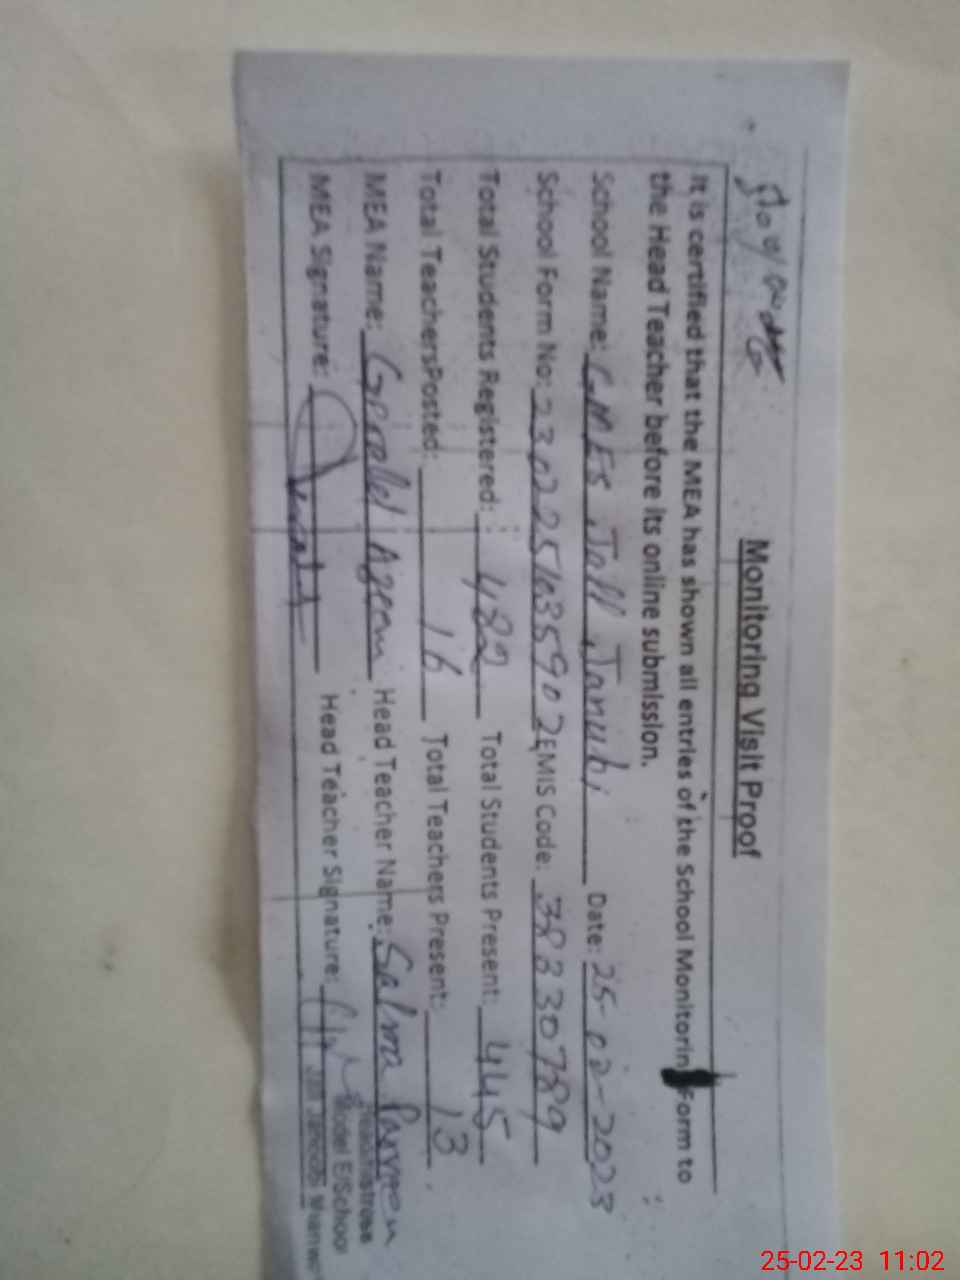 Monitoring Visit Proof
It is certified that the MEA has shown all entries of the School Monitorin Form to
the Head Teacher before its online submission.
School Name: GMES Jall Janubi Date: 25-02-2023
School Form No: EMIS Code: 38330789
Total Students Registered: 482 Total Students Present: 445
Total TeachersPosted: 16 Total Teachers Present: 13
MEA Name: Head Teacher Name: Salma Parveen
MEA Signature: Head Teacher Signature:
Headmistress
Model E/School
25-02-23 11:02